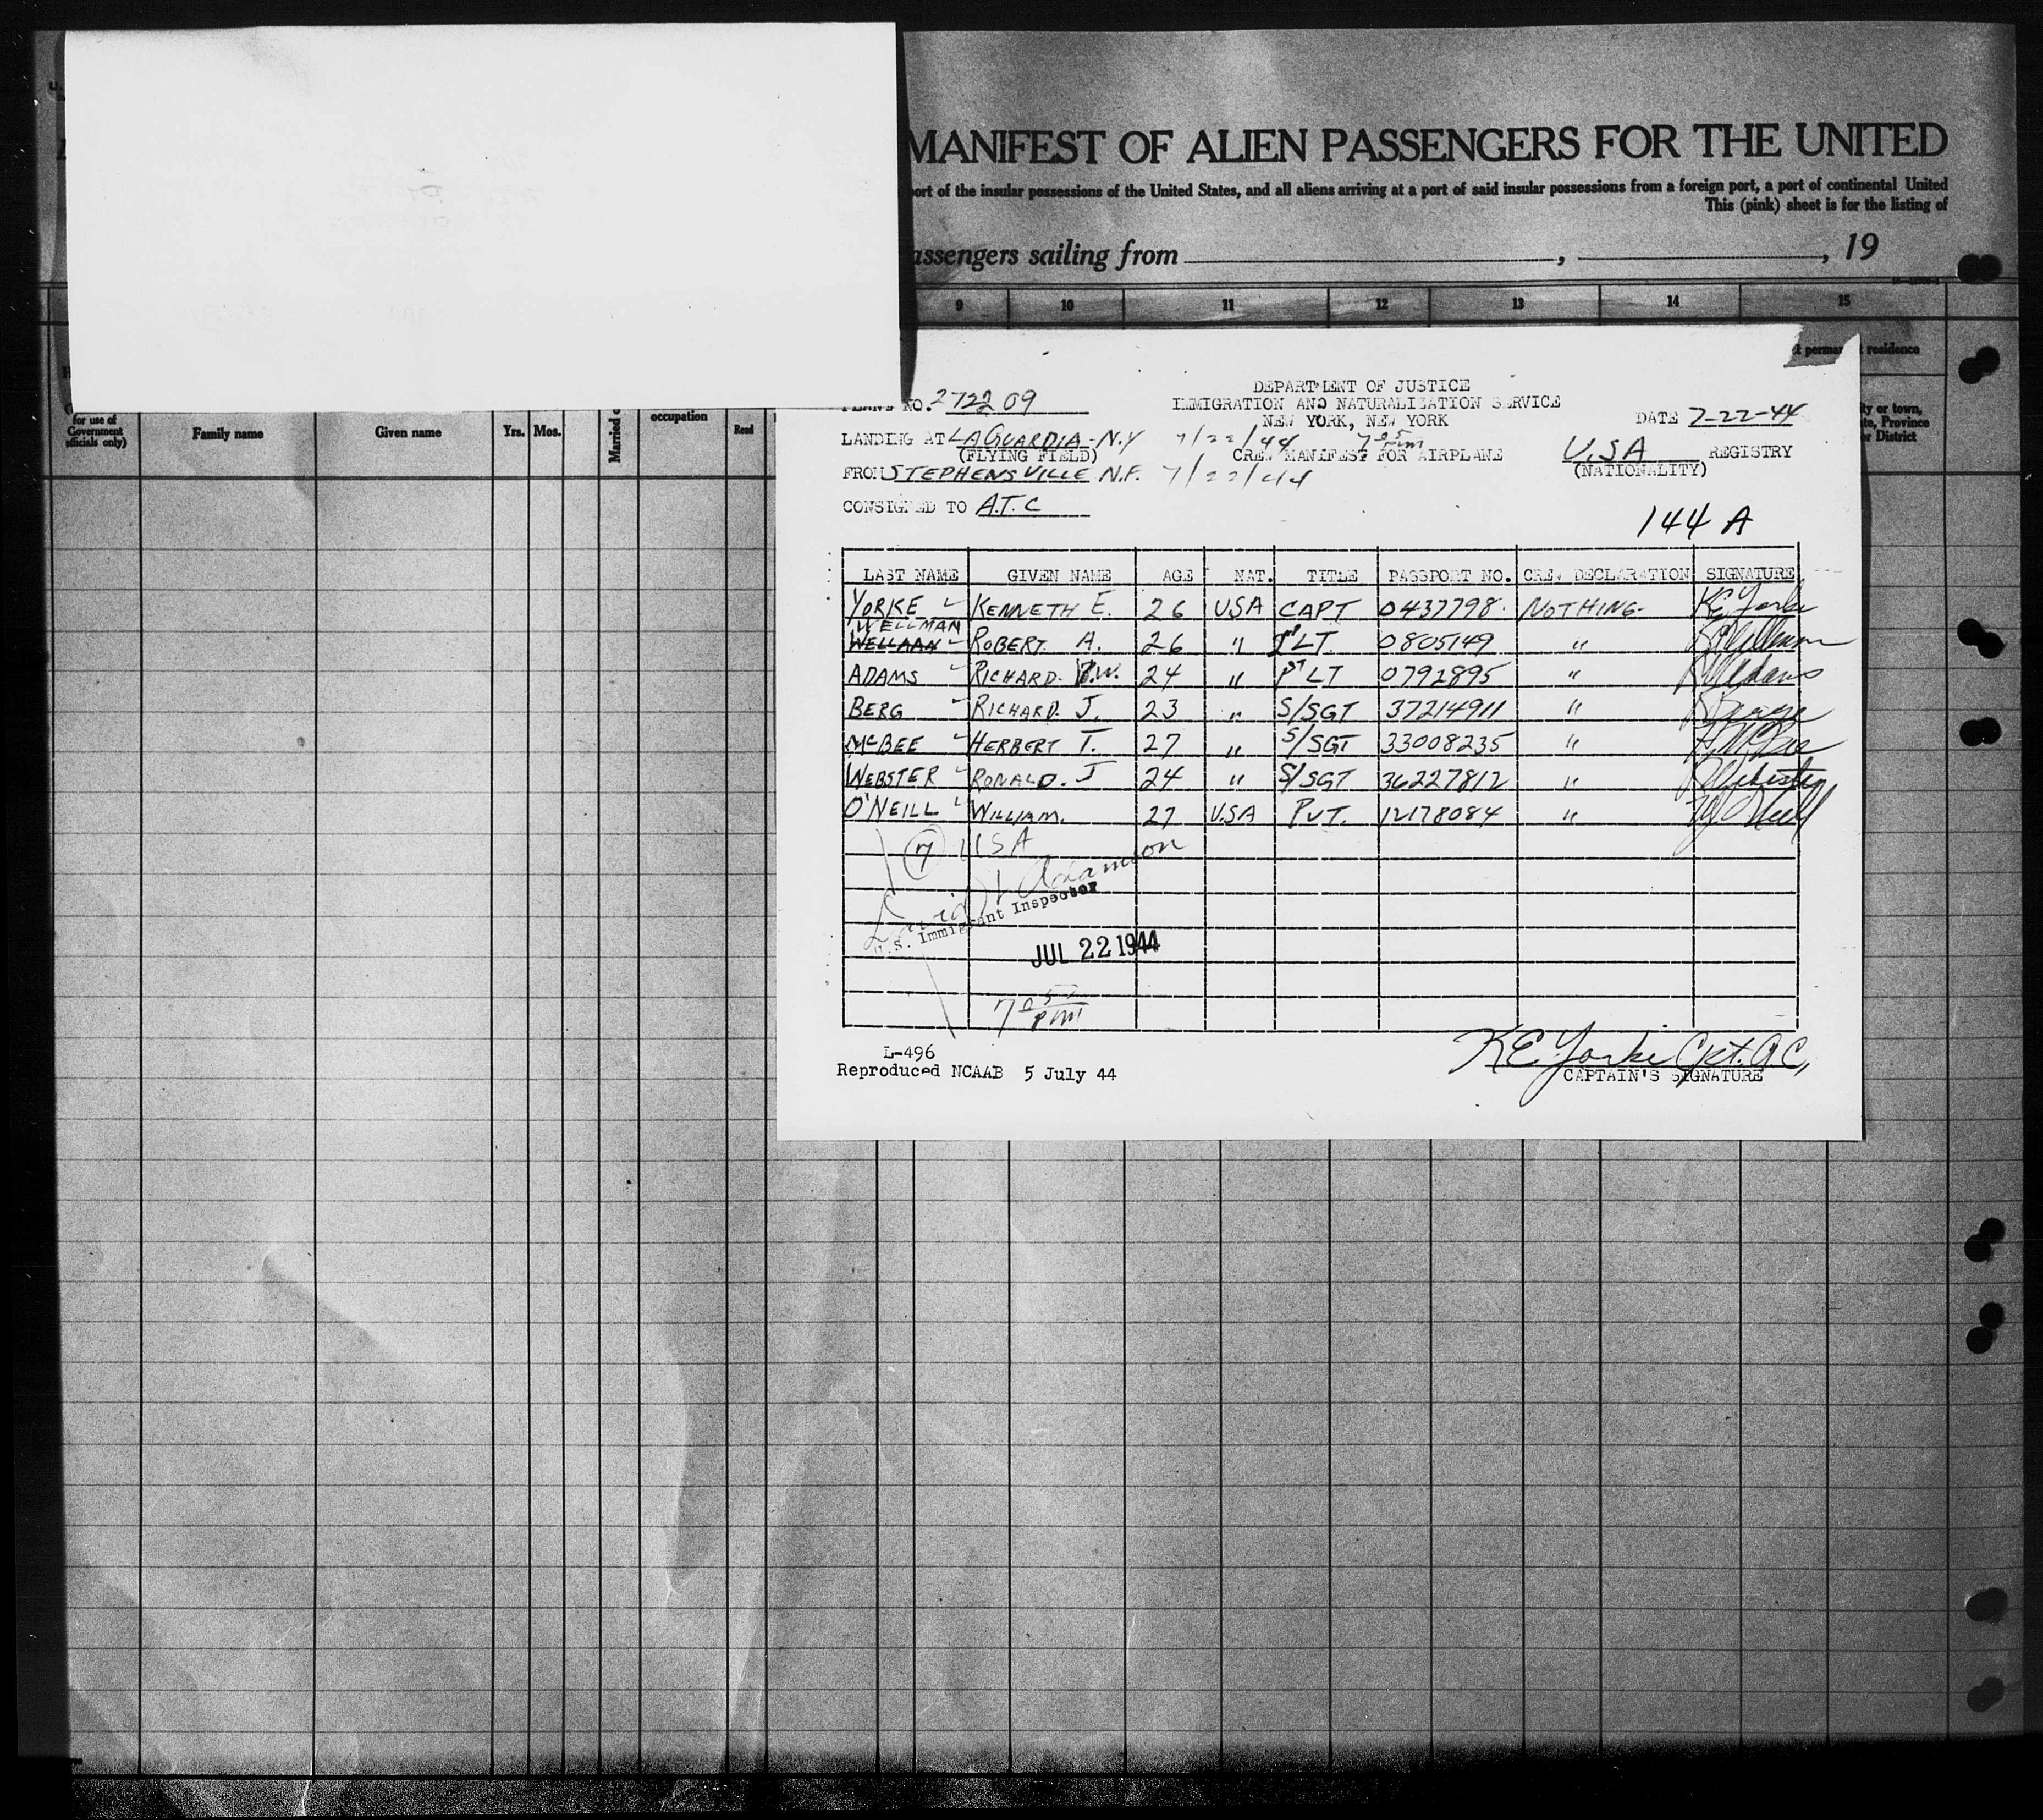 MANIFEST OF ALIEN PASSENGERS FOR THE UNITED
port of the insular possessions of the United States, and all aliens arriving at a port of said insular possessions from a foreign port, a port of continental United
This (pink) sheet is for the listing of
assengers sailing from , , 19
9 10 11 12 13 14 15
permanent residence
for use of Government officials only) Family name Given name Yrs. Mos. Married occupation Read
ty or town,
te, Province
or District
DEPARTMENT OF JUSTICE
IMMIGRATION AND NATURALIZATION SERVICE
NEW YORK, NEW YORK
PLANE NO. 272209
DATE 7-22-44
LANDING AT LA GUARDIA - N.Y 7/22/44 7 05 pm
(FLYING FIELD) CREW MANIFEST FOR AIRPLANE
U.S.A REGISTRY
(NATIONALITY)
FROM STEPHENSVILLE N.F. 7/22/44
CONSIGNED TO A.T.C
144 A
LAST NAME GIVEN NAME AGE NAT. TITLE PASSPORT NO. CREW DECLARATION SIGNATURE
YORKE KENNETH E. 26 USA CAPT 0437798. NOTHING- KE Yorke
WELLMAN
WELLAAN ROBERT A. 26 " 1st LT. 0805149 " RA Wellman
ADAMS RICHARD. W. 24 " 1st LT 0792895 " RW Adams
BERG RICHARD. J. 23 " S/SGT 37214911 "
McBEE HERBERT T. 27 " S/SGT 33008235 "
WEBSTER RONALD. J 24 " S/SGT 36227812 " R Webster
O'NEILL WILLIAM. 27 U.SA PVT. 12178084 " W O'Neill
7 USA
Adamson
U.S. Immigrant Inspector
JUL 22 1944
7 05 pm
L-496
Reproduced NCAAB 5 July 44
KE Yorke Cpt. A.C.
CAPTAIN'S SIGNATURE